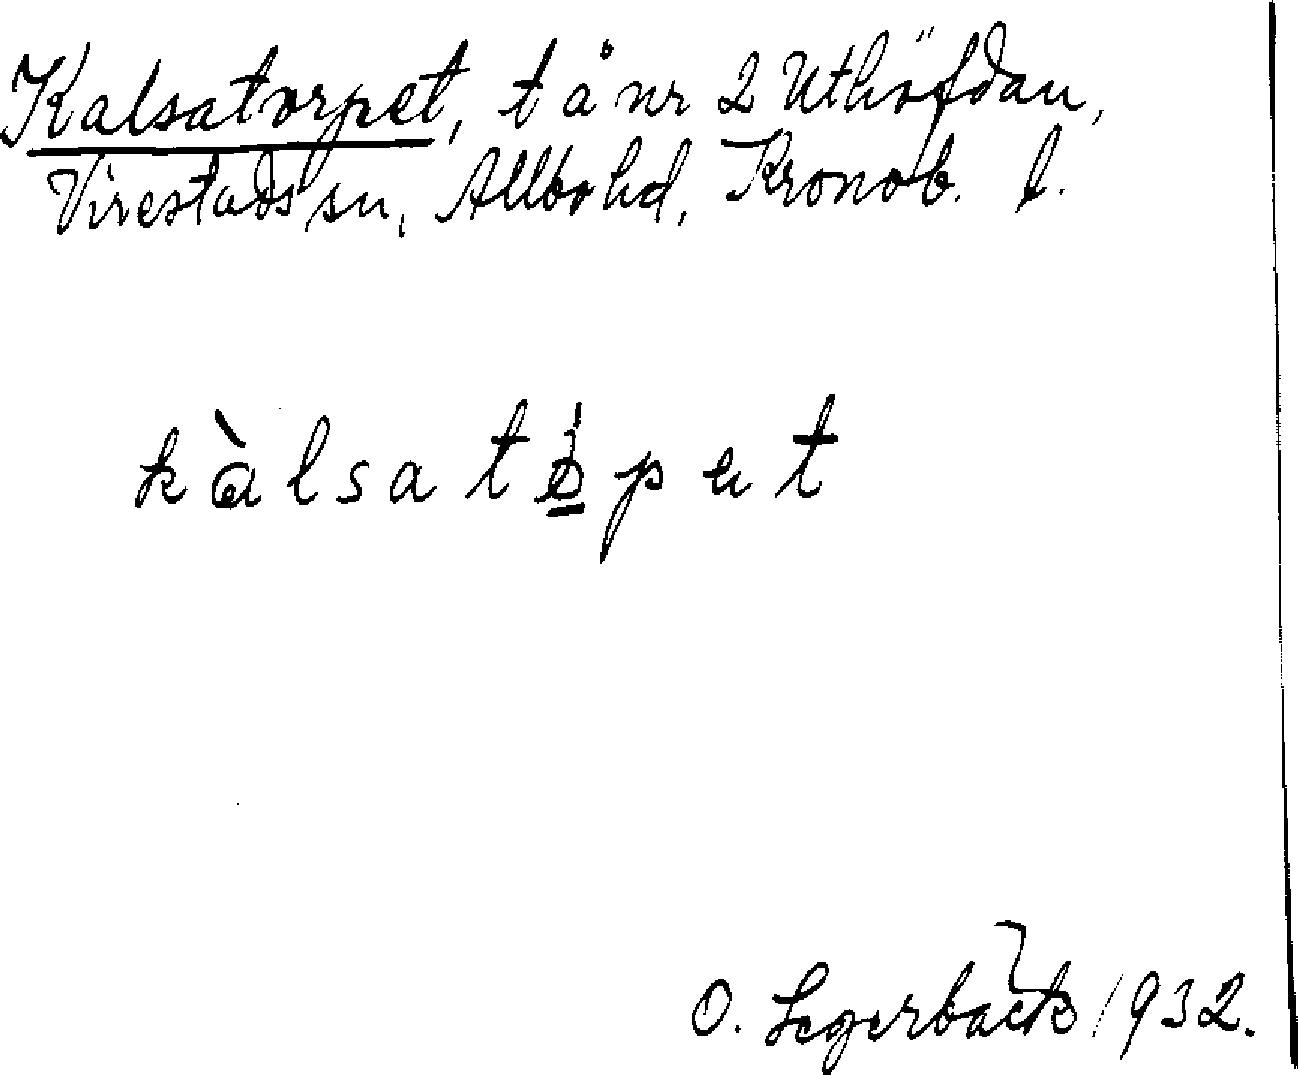 Kalsatorpet, t å nr 2 Uthöfdan,
Virestads sn, Allbo hd, Kronob. l.
kàlsatọ́pet
O. Segerbäck 1932.